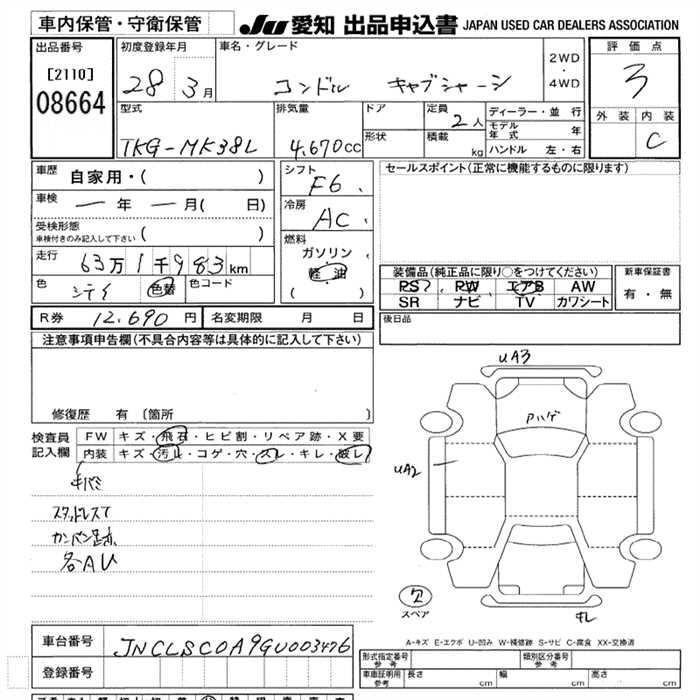 車内保管・守衛保管
JU 愛知 出品申込書 JAPAN USED CAR DEALERS ASSOCIATION
出品番号
[2110]
08664
初度登録年月
28 3月
車名・グレード
コンドル キャブシャーシ
2WD
・
4WD
評価点
3
外装 内装
C
型式
TKG-MK38L
排気量
4,670cc
ドア
形状
定員
2人
積載
kg
ディーラー・並行
モデル年式 年
ハンドル 左・右
車歴
自家用・( )
車検
ー年ー月( 日)
受検形態
車検付きのみ記入して下さい ( )
走行
63万1千983km
色
シテイ
色替
色コード
シフト
F6
冷房
AC
燃料
ガソリン
軽・油
( )
セールスポイント(正常に機能するものに限ります)
装備品(純正品に限り○をつけてください)
PS PW エアB AW
SR ナビ TV カワシート
新車保証書
有・無
R券 12,690円
名変期限 月 日
後日品
注意事項申告欄(不具合内容等は具体的に記入して下さい)
修復歴 有 〔箇所 〕
検査員
記入欄
FW キズ・飛石・ヒビ割・リペア跡・X要
内装 キズ・汚レ・コゲ・穴・スレ・キレ・破レ
キバミ
スタッドレスT
カンバン跡
各AU
UA3
Pハゲ
UA2
欠
スペア
キレ
A-キズ E-エクボ U-凹み W-補修跡 S-サビ C-腐食 XX-交換済
車台番号
JNCLSC0A9GU003476
登録番号
形式指定番号
参考
類別区分番号
参考
車車証明用
参考
長さ cm
幅 cm
高さ cm